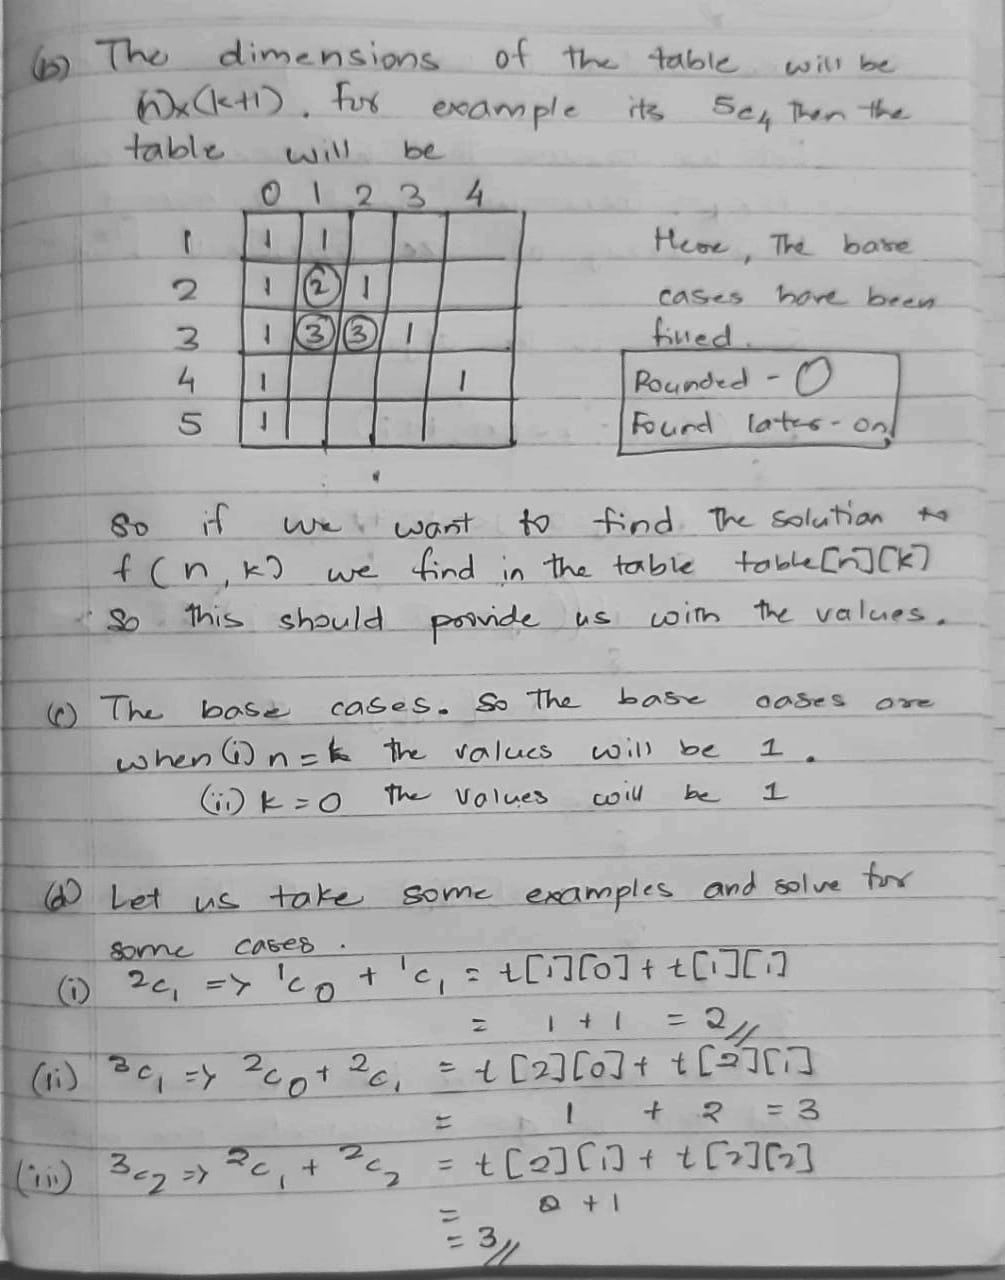 (b) The dimensions of the table will be
(n)x(k+1). For example its 5c₄ then the
table will be
0 1 2 3 4
1 1 1
2 1 2 1
3 1 3 3 1
4 1 1
5 1
Here, The base
cases have been
filled.
Rounded - O
Found later-on
So if we want to find the solution to
f(n,k) we find in the table table[n][k]
So this should provide us with the values.
(c) The base cases. So the base cases are
when (i) n=k the values will be 1.
(ii) k=0 the values will be 1
(d) Let us take some examples and solve for
some cases.
(i) ²c₁ => ¹c₀ + ¹c₁ = t[1][0] + t[1][1]
= 1 + 1 = 2//
(ii) ³c₁ => ²c₀ + ²c₁ = t[2][0] + t[2][1]
= 1 + 2 = 3
(iii) ³c₂ => ²c₁ + ²c₂ = t[2][1] + t[2][2]
= 2 + 1
= 3//